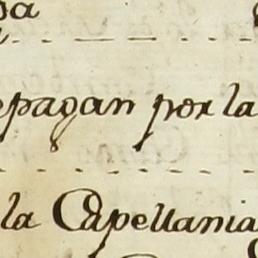 epagan por la
la Capellania